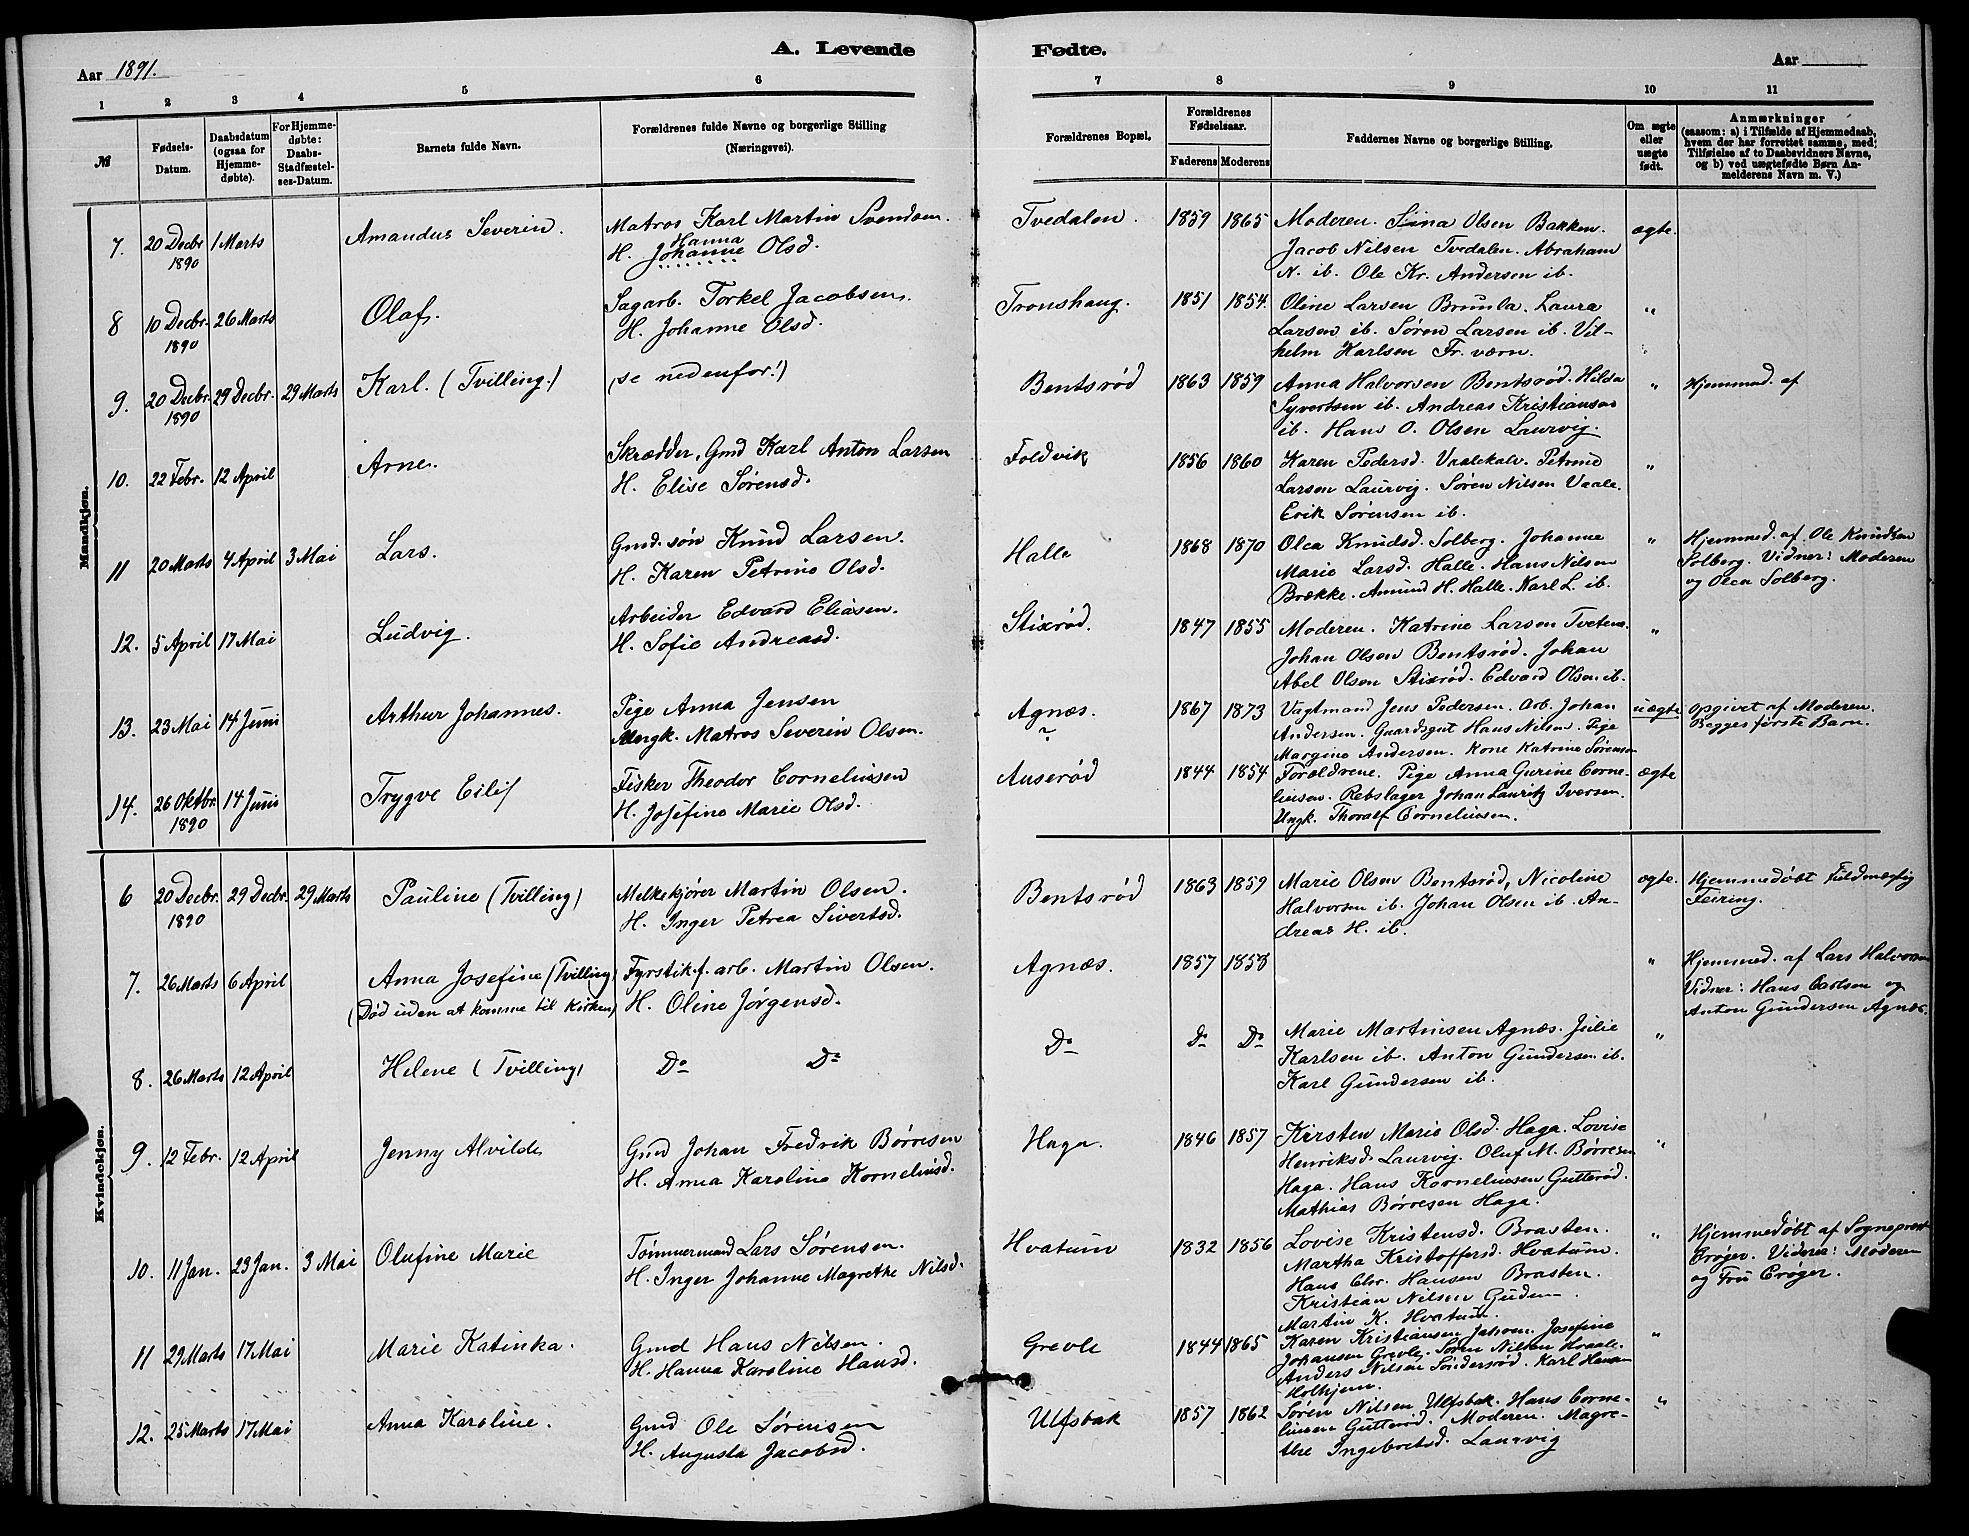 A. Levende
Fødte.
Aar 1891.
Aar
1 2 3 4 5 6
7 8 9 10 11
№
Fødsels-Datum.
Daabsdatum (ogsaa for Hjemme-døbte).
For Hjemme-døbte: Daabs-Stadfæstel-ses-Datum.
Barnets fulde Navn.
Forældrenes fulde Navne og borgerlige Stilling
(Næringsvei).
Forældrenes Bopæl.
Forældrenes Fødselsaar.
Faderens Moderens
Faddernes Navne og borgerlige Stilling.
Om ægte eller uægte født.
Anmærkninger
(saasom: a) i Tilfælde af Hjemmedaab,
hvem der har forrettet samme, med
Tilføielse af to Daabsvidners Navne,
og b) ved uægtefødte Børn An-
melderens Navn m. V.)
Mandkjøn.
7. 20 Decbr 1890 1 Marts Amandus Severin.
Matros Karl Martin Svendsen.
Hanna
H. Johanne Olsd.
Tvedalen. 1859 1865
Moderen. Sina Olsen Bakken.
Jacob Nilsen Tvedalen. Abraham
N. ib. Ole Kr. Andersen ib.
ægte.
8 10 Decbr. 1890 26 Marts Olaf.
Sagarb. Torkel Jacobsen.
H. Johanne Olsd.
Tronshaug. 1851 1854.
Oline Larsen Brunla. Laura
Larsen ib. Søren Larsen ib. Vil-
helm Karlsen Fr. værn.
"
9. 20 Decbr. 1890 29 Decbr. 29 Marts Karl. (Tvilling.)
(se nedenfor!)
Bentsrød 1863 1859
Anna Halvorsen Bentsrød. Hilda
Syvertsen ib. Andreas Kristiansen
ib. Hans O. Olsen Laurvig.
"
Hjemmed. af
10. 22 Febr. 12 April Arne.
Skrædder, Gmd Karl Anton Larsen
H. Elise Sørensd.
Foldvik 1856 1860
Karen Pedersd. Vaalekalv. Petrine
Larsen Laurvig. Søren Nilsen Vaale.
Erik Sørensen ib.
"
11 20 Marts 4 April 3 Mai Lars.
Gmd. søn Knud Larsen.
H. Karen Petrine Olsd.
Halle 1868 1870
Olea Knudsd. Solberg. Johanne
Marie Larsd. Halle. Hans Nilsen
Brække. Amund H. Halle. Karl L. ib.
"
Hjemmed. af Ole Knudsen
Solberg. Vidner: Moderen
og Olea Solberg.
12. 5 April 17 Mai Ludvig.
Arbeider Edvard Eliasen.
H. Sofie Andreasd.
Stixrød. 1847 1855
Moderen. Katrine Larsen Tvetene.
Johan Olsen Bentsrød. Johan
Abel Olsen Stixrød. Edvard Olsen ib.
"
13. 23 Mai 14 Juni Arthur Johannes.
Pige Anna Jensen
Ungk. Matros Severin Olsen.
Agnæs. 1867 1873
Vagtmand Jens Pedersen. Arb. Johan
Andersen. Gaardsgut Hans Nilsen. Pige
Margine Andersen. Kone Katrine Sørensen
uægte
opgivet af Moderen.
Begges første Barn.
14. 26 Oktbr. 1890 14 Juni Trygve Eilif
Fisker Theodor Corneliussen
H. Josefine Marie Olsd.
Auserød 1844 1854
Forældrene. Pige Anna Gurine Corne-
liusen. Rebslager Johan Lauritz Iversen.
Ungk. Thoralf Corneliussen.
ægte
Kvindekjøn.
6 20 Decbr. 1890 29 Decbr. 29 Marts Pauline (Tvilling)
Melkekjører Martin Olsen.
H. Inger Petrea Sivertsd.
Bentsrød 1863 1859
Marie Olsen Bentsrød, Nicoline
Halvorsen ib. Johan Olsen ib. An-
dreas H. ib.
ægte.
Hjemmedøbt Fuldmægtig
Feiring.
7. 26 Marts 6 April Anna Josefine (Tvilling)
(Død uden at komme til Kirken)
Fyrstikf. arb. Martin Olsen.
H. Oline Jørgensd.
Agnæs. 1857 1858
"
Hjemmed. af Lars Halvorsen
Vidner: Hans Carlsen og
Anton Gundersen Agnæs.
8. 26 Marts 12 April Helene (Tvilling)
Do Do
Do Do Do
Marie Martinsen Agnæs. Julie
Karlsen ib. Anton Gundersen ib.
Karl Gundersen ib.
"
9. 12 Febr. 12 April Jenny Alvilde
Gmd Johan Fredrik Børresen
H. Anna Karoline Korneliusd.
Haga. 1846 1857
Kirsten Marie Olsd. Haga. Lovise
Henriksd. Laurvig. Oluf M. Børresen
Haga. Hans Korneliussen Gutterød.
Mathias Børresen Haga.
"
10. 11 Jan. 23 Jan. 3 Mai Olufine Marie
Tømmermand Lars Sørensen.
H. Inger Johanne Magrethe Nilsd.
Hvatum 1832 1856
Lovise Kristensd. Brasten.
Martha Kristoffersd. Hvatum.
Hans Chr. Hansen Brasten.
Kristian Nilsen Guden.
Martin K. Hvatum.
"
Hjemmedøbt af Sogneprest
Crøger. Vidner: Moderen
og Fru Crøger.
11 29 Marts 17 Mai Marie Katinka.
Gmd Hans Nilsen.
H. Hanna Karoline Hansd.
Grevle 1844 1865
Karen Kristiansen Jahom. Josefine
Johansen Grevle. Søren Nilsen Hvaale.
Anders Nilsen Søndersrød. Karl Hansen
Holhjem.
"
12. 25 Marts 17 Mai Anna Karoline.
Gmd Ole Sørensen
H. Augusta Jacobsd.
Ulfsbak 1857 1862
Søren Nilsen Ulfsbak. Hans Corne-
liusen Gutterød. Moderen. Magre-
the Ingebretsd. Laurvig
"